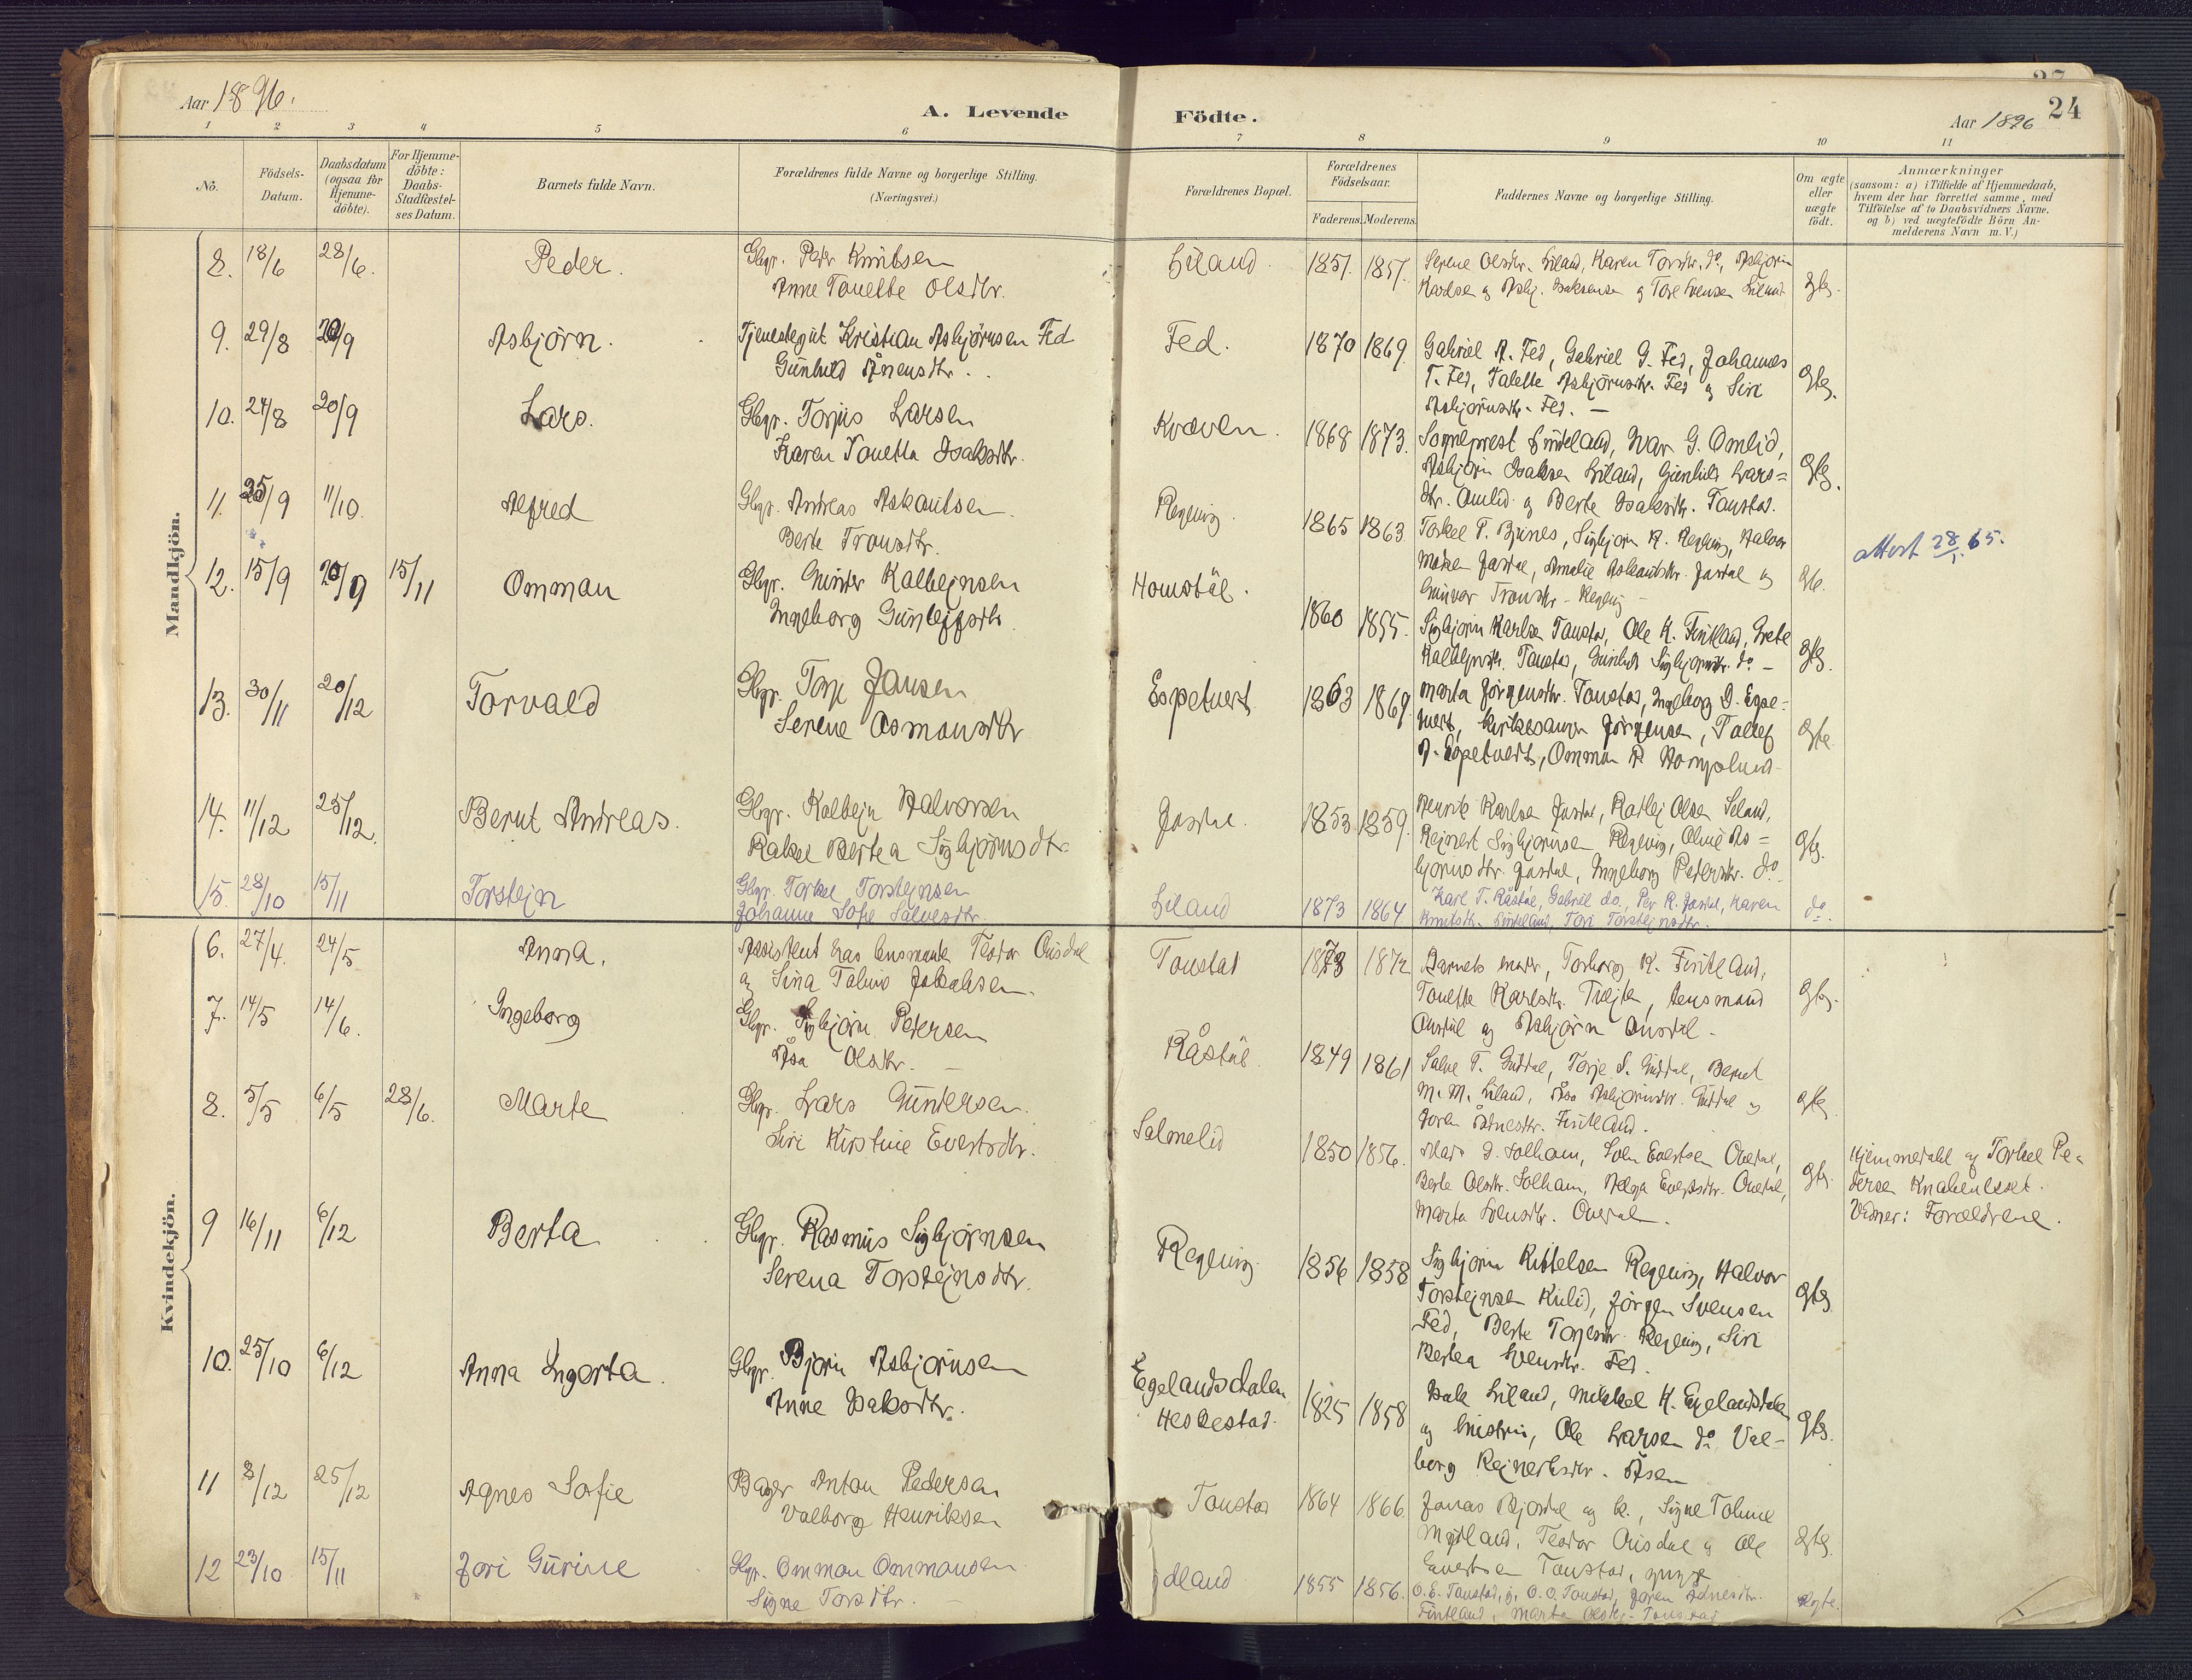 Aar 1896.
A. Levende
Födte.
Aar 1896
24
1 2 3 4 5 6 7 8 9 10 11
No.
Födsels-
Datum.
Daabsdatum
(ogsaa for
Hjemme-
döbte).
For Hjemme-
döbte:
Daabs-
Stadfæstel-
ses Datum.
Barnets fulde Navn.
Forældrenes fulde Navne og borgerlige Stilling.
(Næringsvei.)
Forældrenes Bopæl.
Forældrenes
Födselsaar.
Faderens. Moderens.
Faddernes Navne og borgerlige Stilling.
Om ægte
eller
uægte
födt.
Anmærkninger
(saasom: a) i Tilfælde af Hjemmedaab,
hvem der har forrettet samme, med
Tilföielse af to Daabsvidners Navne.
og b) ved uægtefödte Börn An-
melderens Navn m. V.)
Mandkjön.
8. 18/6 28/6. Peder. Gbgr. Peder Knutsen
Anne Tonette Olsdtr.
Liland. 1857. 1857. Serene Olsdtr. Liland, Karen Torsdtr. do, Asbjörn
Karlsen og Asbj. Isaksen og Tore Svensen Liland
Gte.
9. 29/8 20/9 Asbjörn. Tjenestegut Kristian Asbjörnsen Fed
Gunhild Ånensdtr.
Fed. 1870 1869. Gabriel A. Fed, Gabriel G. Fed, Johannes
T. Fed, Talette Asbjörnsdtr. Fed og Siri
Asbjörnsdtr. Fed. —
Gte.
10. 24/8 20/9 Lars. Gbgr. Torjus Larsen
Karen Tonetta Isaksdtr.
Kvæven. 1868 1873. Sogneprest Lindeland, Ivar G. Omlid,
Asbjörn Isaksen Liland, Gunhild Lars=
dtr. Omlid og Berte Isaksdtr. Tonstad.
Gte.
11. 25/9 11/10. Alfred Gbgr. Andreas Askoutsen.
Berte Tronsdtr.
Regevig. 1865 1863. Torkel P. Bjunes, Sigbjörn R. Regevig, Halvor
Josdal, Amalie Josdal og
Gunvor Tronsdtr. Regevig
Gte.
attest 28/1. 65.
12. 15/9 20/9 15/11 Omman Gbgr. Gunder Kalleejnsen
Ingeborg Gunlejfsdtr.
Homstöl. 1860 1855. Sigbjörn Karlsen Tonstad, Ole K. Fintland, Grete
Tonstad, Gunhild Sigbjörnsdtr. do —
Gte.
13. 30/11 20/12 Torvald Gbgr. Torje Jansen
Serene Osmonsdtr
Espetvert 1863 1869. Marta Jörgensdtr. Tonstad, Ingeborg D. Espe-
tvert, Kirkesanger Jörgensen, Tallef
A. Espetvedt, Omman R
Gte.
14. 11/12 25/12. Bernt Andreas. Gbgr. Kalleejn Halvorsen
Rakel Bertea Sigbjörnsdtr
Josdal. 1853. 1859. Henrik Karlsen Josdal, Olsen Seland,
Rejnert Sigbjörnsen Regevig, As=
björnsdtr. Josdal, Ingeborg Pedersdtr. do.
Gte.
15. 28/10 15/11 Torstejn Gbgr. Torkel Torstejnsen
Johanne Sofie Salvesdtr.
Liland 1873 1864 Karl T. Råstöl, Gabriel do., Per R. Josdal, Karen
Knutsdtr. Lindeland, Tori Torstejnsdtr.
do.
Kvindekjön.
6. 27/4. 24/5 Anna. Assistent hos lensmand Teodor Ousdal
og Sina Taline Jakobsen.
Tonstad 1873 1872 Barnets mor, Torborg K. Fintland,
Tonette Karlsdtr. Tvejten, lensmand
Ousdal og Asbjörn Ousdal —
Gte.
7. 14/5 14/6. Ingeborg Gbgr. Sigbjörn Pedersen
Åsa Olsdtr. —
Råstöl. 1849 1861 Salve T. Guddal, Torje S. Guddal, Bernt
M. M. Liland, Åsa Asbjörnsdtr. Guddal og
Joren Ådnesdtr. Fintland.
Gte.
8. 5/5 6/5 28/6. Marte Gbgr. Lars Gundersen.
Siri Kirstine Evertsdtr.
Salmelid 1850 1856. Mads D. Solham, Sven Evertsen Ouedal,
Berte Olsdtr. Solham, Helga Evertsdtr. Ouedal,
Marta Svensdtr. Ouedal.
Gte.
Hjemmedøbt af Torkel Pe-
dersen Knabenleset.
Vidner: Forældrene.
9 16/11 6/12 Berta Gbgr. Rasmus Sigbjörnsen
Serena Torstejnsdtr.
Regevig. 1856 1858 Sigbjörn Kittelsen Regevig, Halvor
Torstejnsen Kulid, Jörgen Svensen
Fed, Berte Torjesdtr. Regevig, Siri
Bertea Svensdtr. Fed.
Gte.
10. 25/10 6/12 Anna Ingerta. Gbgr. Björn Asbjörnsen
Anne Isaksdtr.
Egelandsdalen
Heskestad. 1825 1858 Isak Liland, Mikkel H. Egelandsdalen
og hustru, Ole Larsen do. Val-
borg Rejnertsdtr. Åsen
Gte.
11 8/12 25/12 Agnes Sofie Bager Anton Pedersen
Valborg Henriksen
Tonstad 1864 1866. Jonas Bjordal og k., Signe Tomine
Mydland, Teodor Ousdal og Ole
Evertsen Tonstad,
Gte.
12 23/10 15/11 Jori Gurine Gbgr. Omman Ommonsen
Signe Torsdtr. —
1855 1856. O. E. Tonstad, g. O. O. Tonstad, Joren Ådnesdtr.
Fintland, Marta Olsdtr. Tonstad
Ægte.